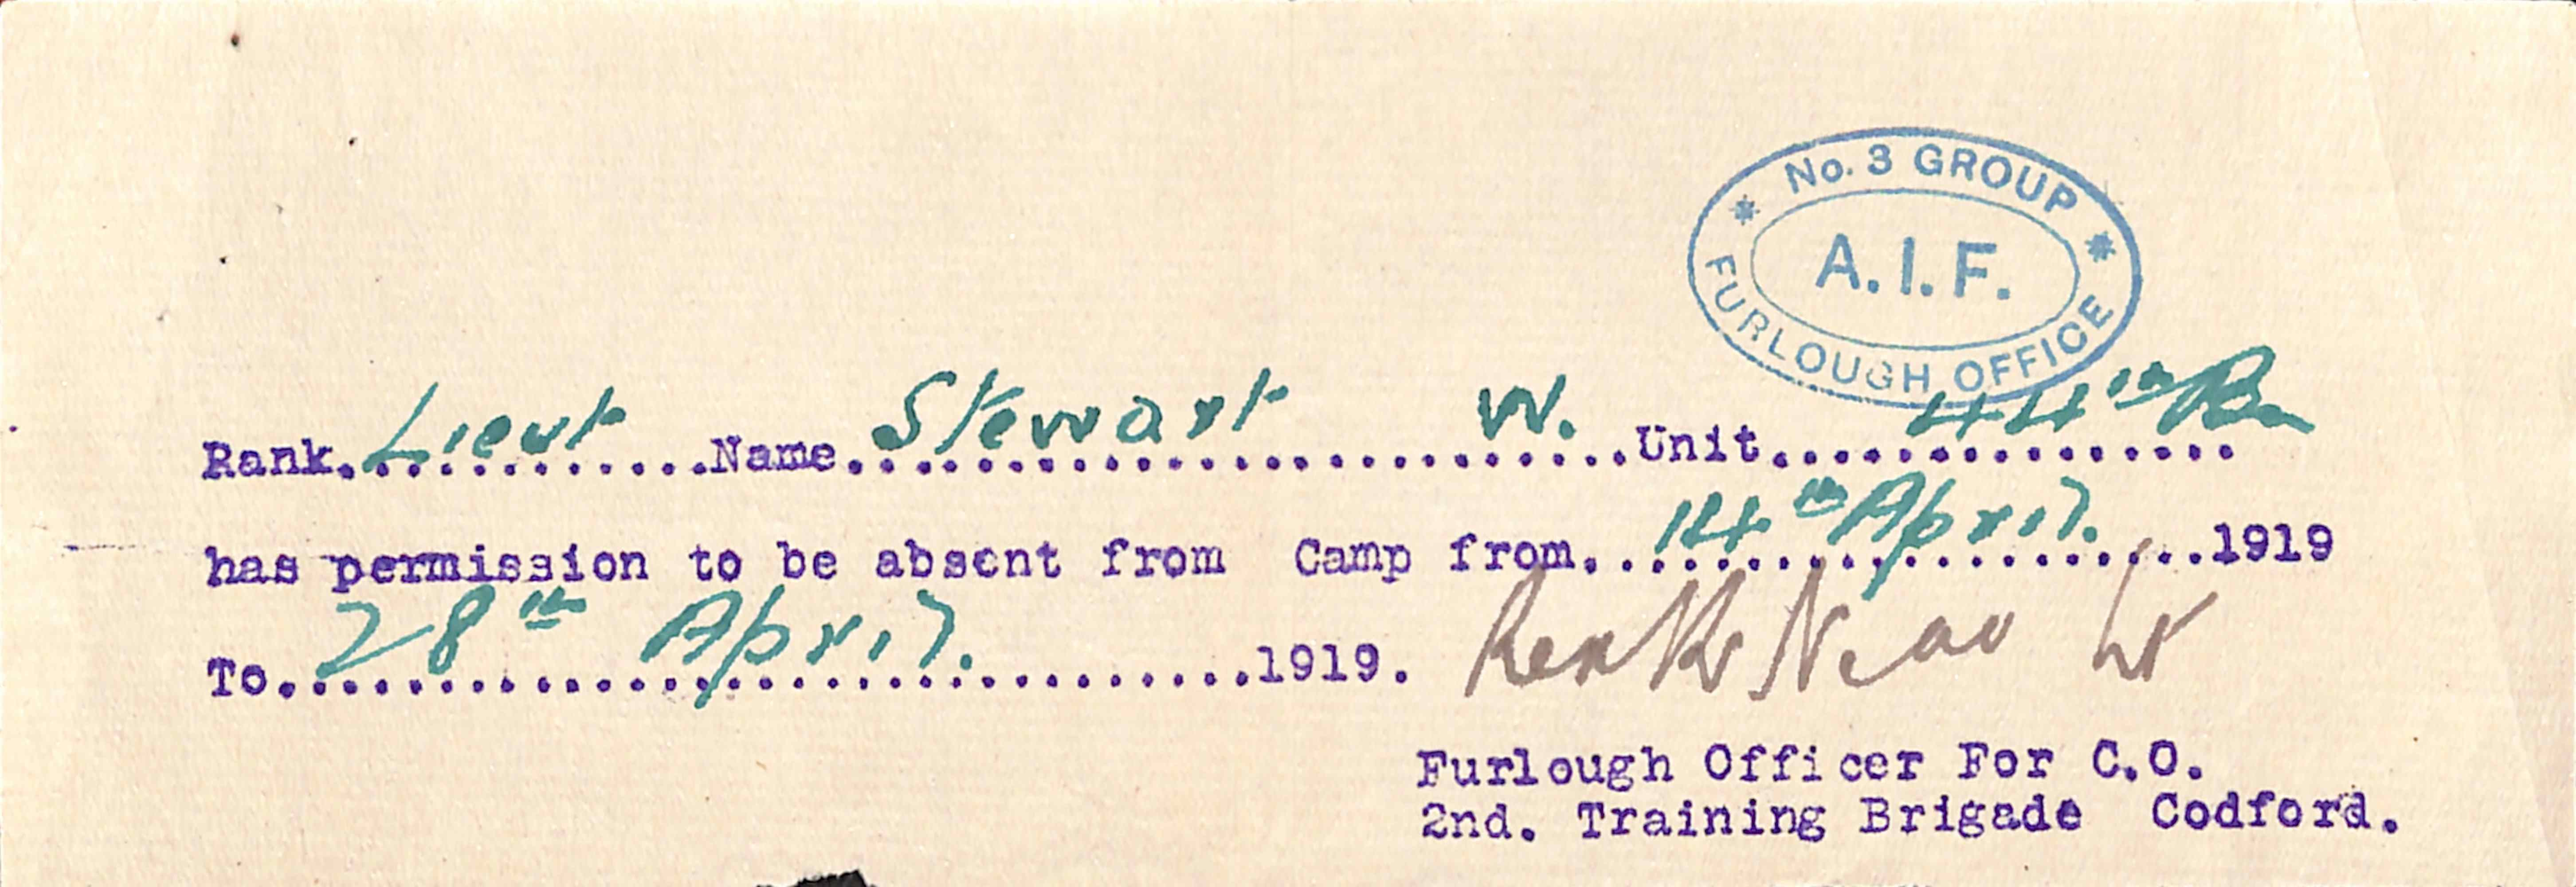 No. 3 GROUP
A.I.F.
FURLOUGH OFFICE
Rank. Lieut ........Name. Stewart W. ........Unit. 44th Bn
has permission to be absent from Camp from. 14th April. ........1919
To. 28th April. ........1919.
Lt
Furlough Officer For C.O.
2nd. Training Brigade Codford.